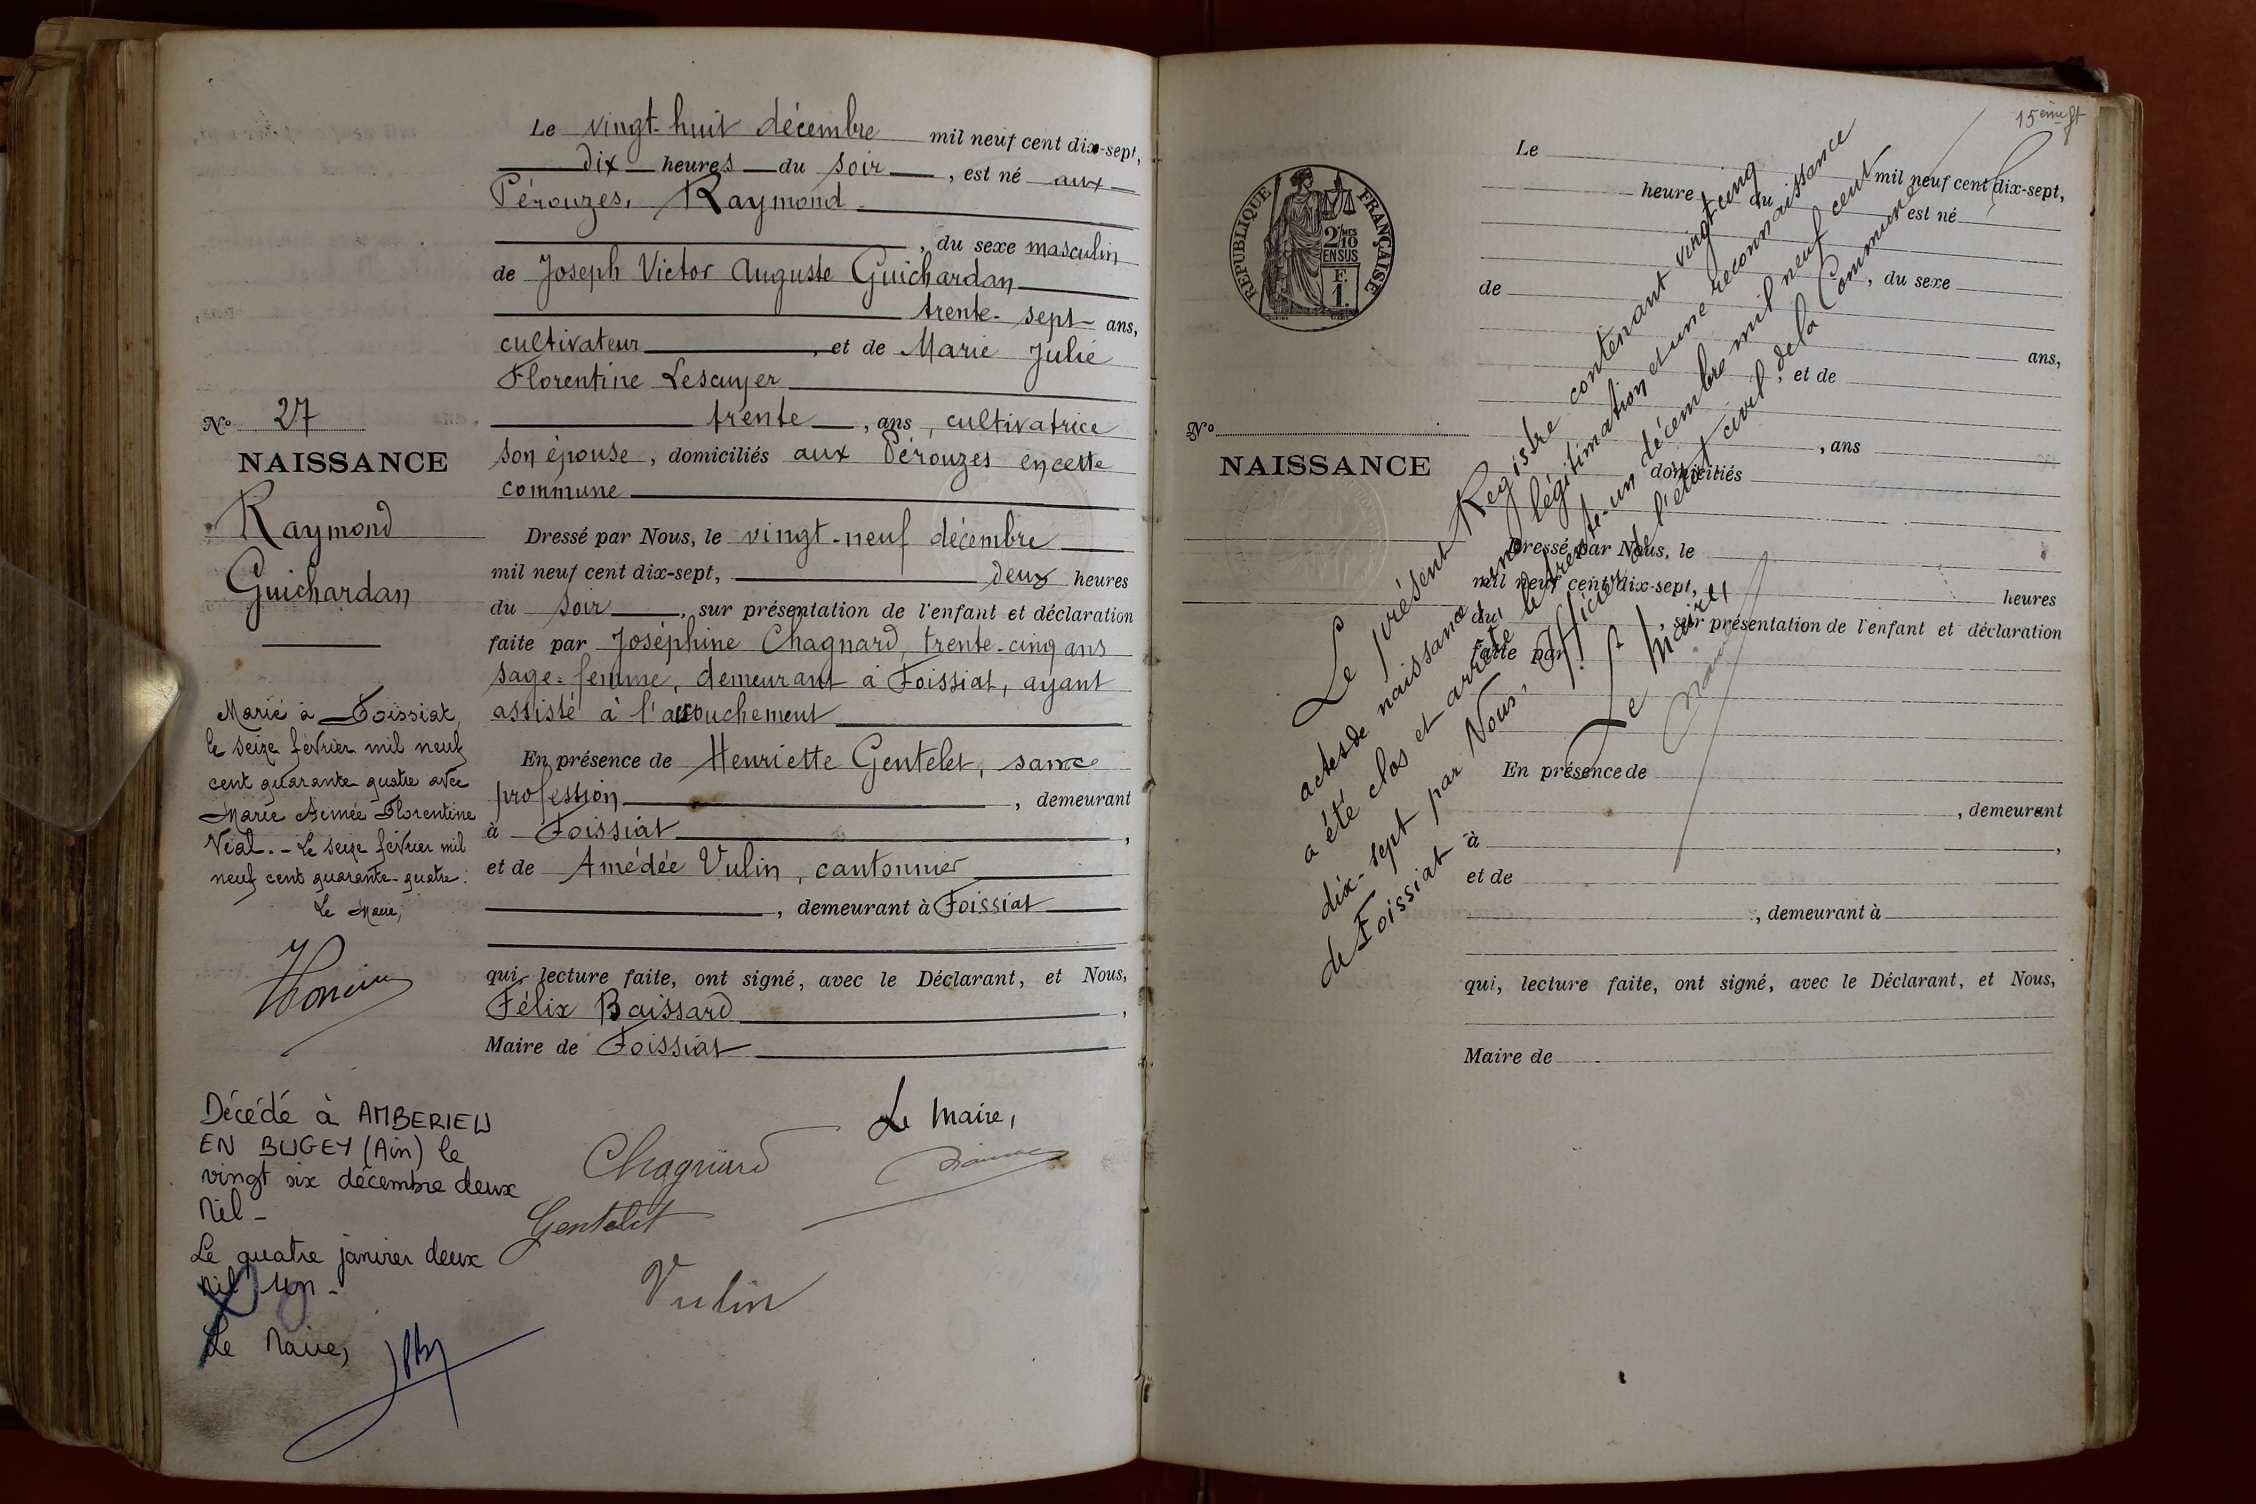 Le vingt-huit décembre mil neuf cent dix-sept,
dix heures du soir, est né aux
Pérouzes, Raymond
, du sexe masculin
de Joseph Victor Auguste Guichardan
trente-sept ans,
cultivateur, et de Marie Julie
Florentine Lescuyer
trente, ans, cultivatrice
son épouse, domiciliés aux Pérouzes en cette
commune
Dressé par Nous, le vingt-neuf décembre
mil neuf cent dix-sept, deux heures
du soir, sur présentation de l'enfant et déclaration
faite par Joséphine Chagnard, trente-cinq ans
sage-femme, demeurant à Foissiat, ayant
assisté à l'accouchement
En présence de Henriette Gentelet, sans
profession, demeurant
à Foissiat,
et de Amédée Vulin, cantonnier
, demeurant à Foissiat
qui, lecture faite, ont signé, avec le Déclarant, et Nous,
Félix Baissard,
Maire de Foissiat
Le Maire,
Chagnard
Gentelet
Vulin
No 27
NAISSANCE
Raymond
Guichardan
Marié à Foissiat,
le seize février mil neuf
cent quarante-quatre avec
Marie Aimée Florentine
Vial. - Le seize février mil
neuf cent quarante-quatre.
Le Maire,
Décédé à AMBERIEU
EN BUGEY (Ain) le
vingt six décembre deux
Mil -
Le quatre janvier deux
Mil un -
Le Maire,
15ème ft
REPUBLIQUE FRANÇAISE
2MES
10
EN SUS
F.
1.
Le mil neuf cent dix-sept,
heure du
est né
, du sexe
de
ans,
, et de
, ans
domiciliés
No
NAISSANCE
Dressé par Nous, le
mil neuf cent dix-sept, heures
du, sur présentation de l'enfant et déclaration
faite par
En présence de
, demeurant
à,
et de
, demeurant à
qui, lecture faite, ont signé, avec le Déclarant, et Nous,
Maire de
Le présent Registre contenant vingt cinq
actes de naissance, une légitimation et une reconnaissance
a été clos et arrêté le trente-un décembre mil neuf cent
dix-sept par Nous, Officier de l'état civil de la Commune
de Foissiat
Le Maire,